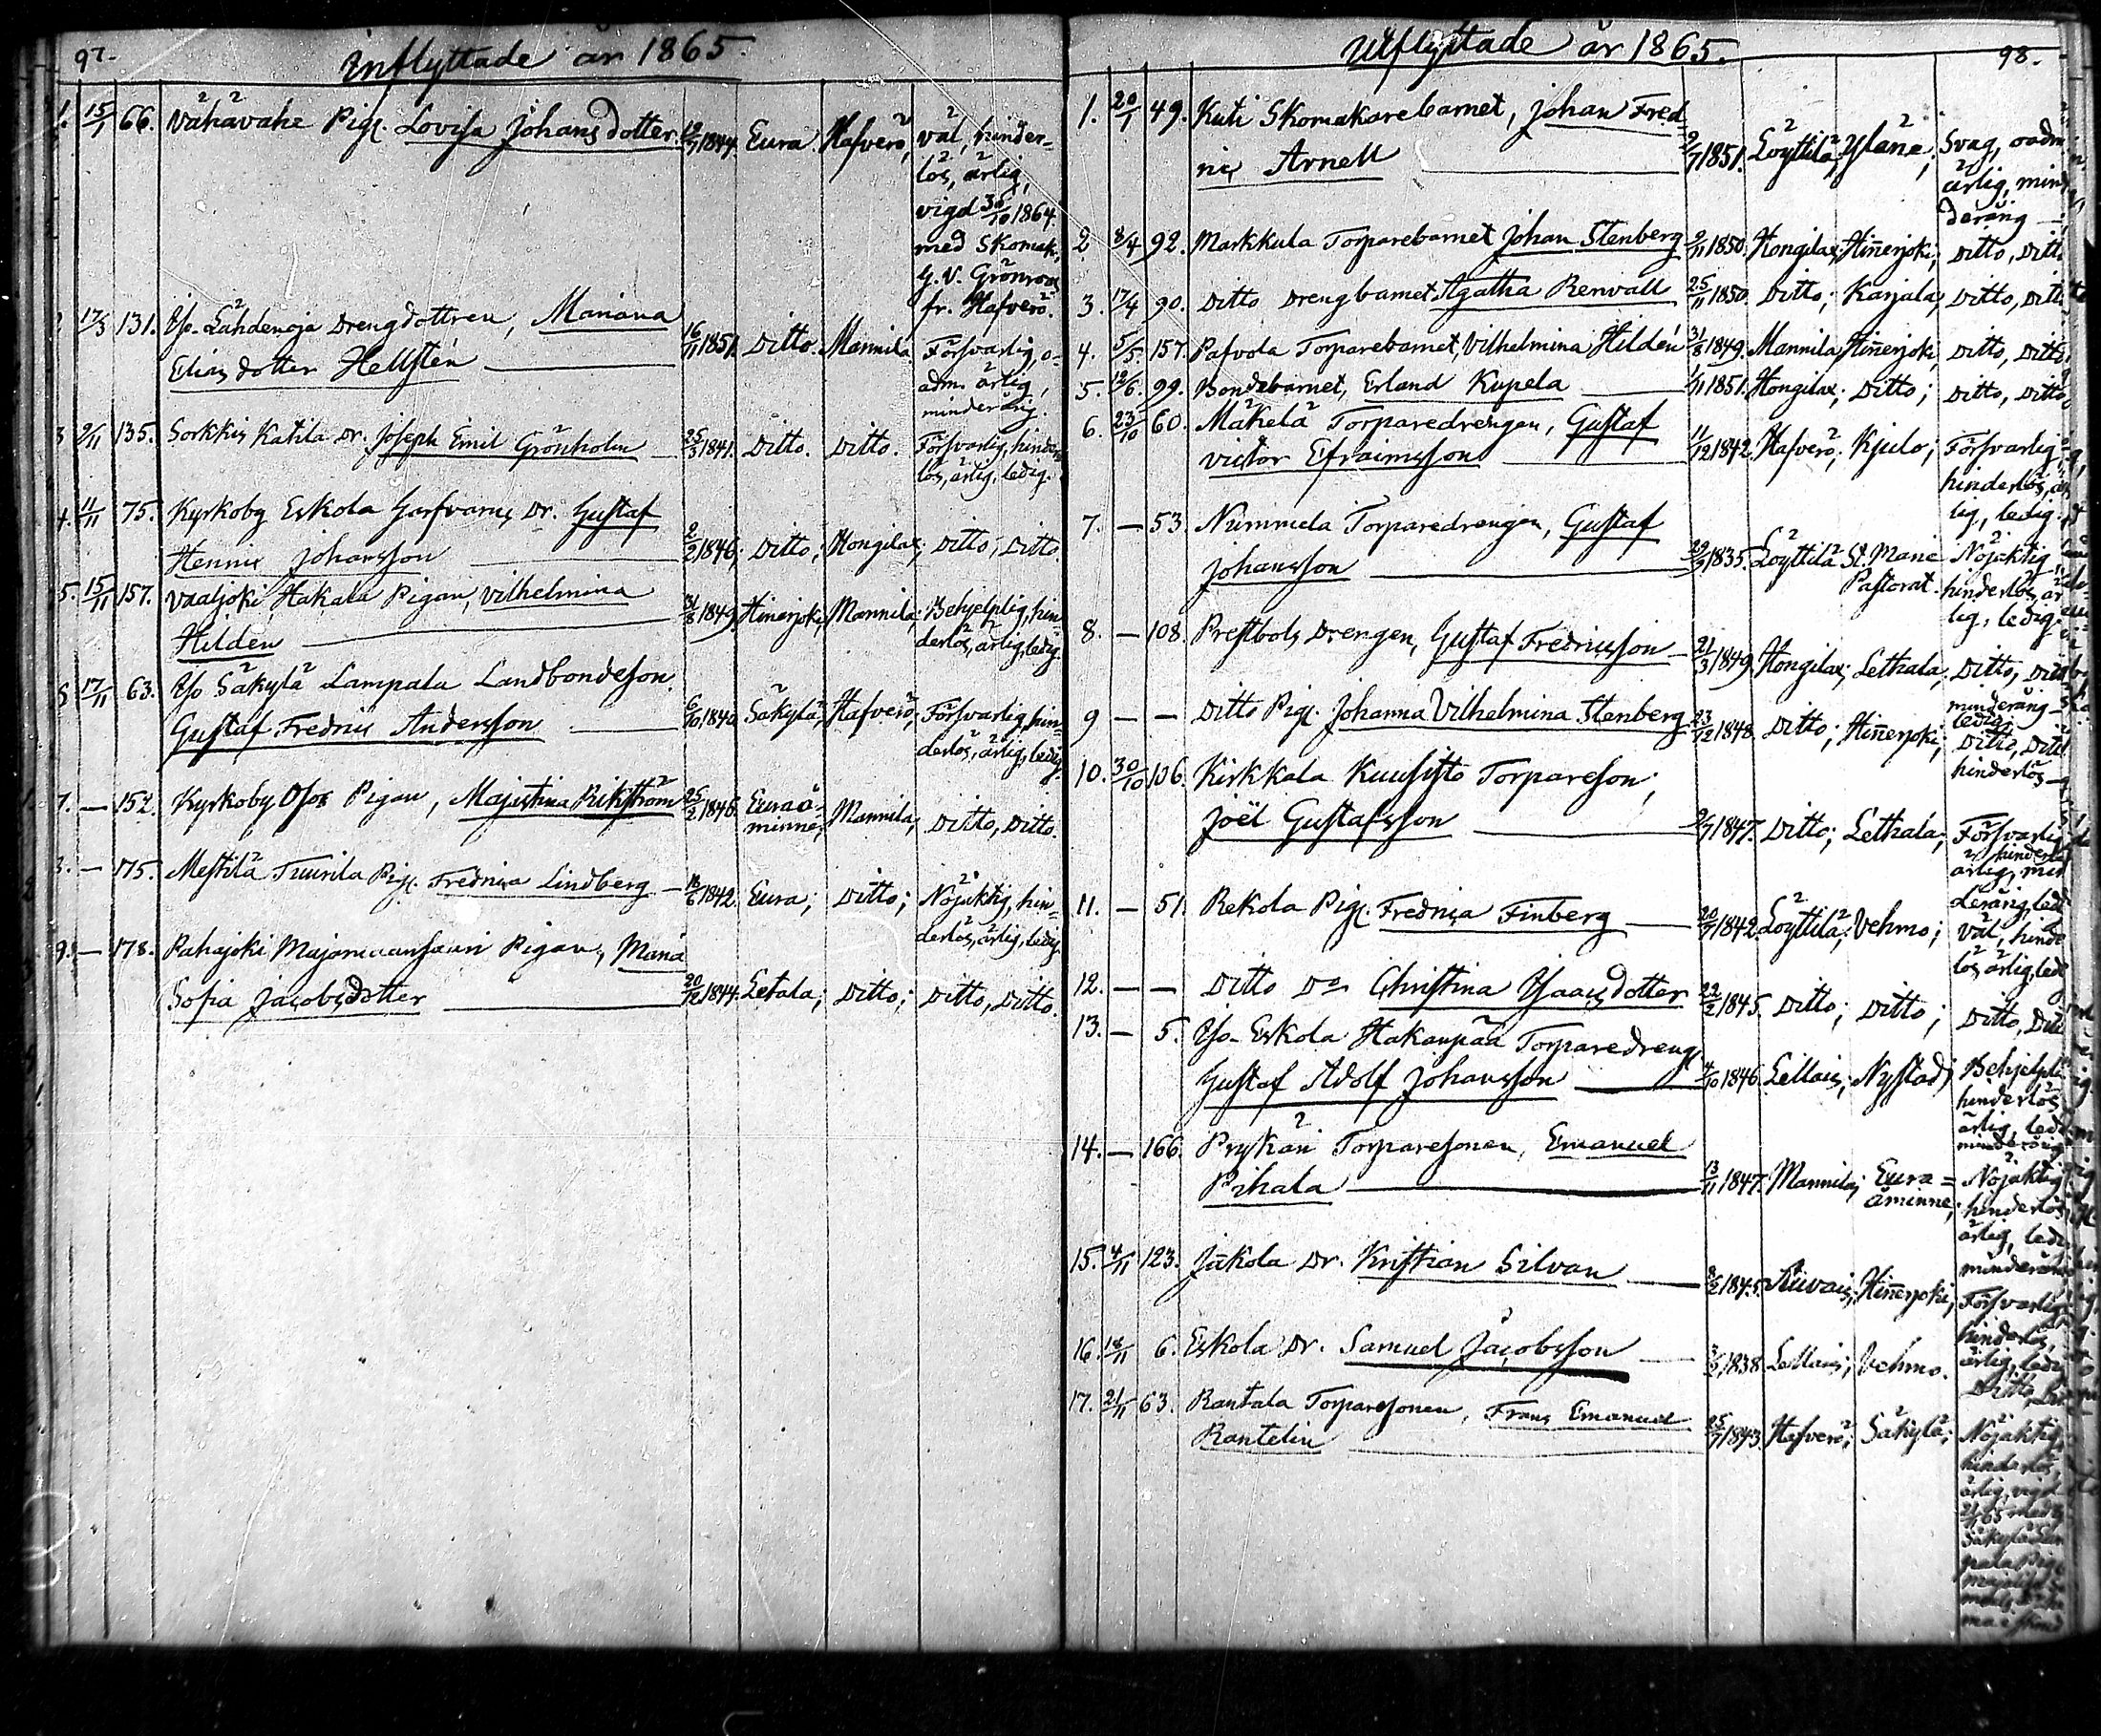 97.
Inflyttade år 1865.
1. 15/1 66. Vähävahe Pig. Lovisa Johansdotter 1844. Eura. Hafverö, väl, hinder-
lös, ärlig,
vigd 30/10 1864
med Skomak.
G. V. Grönroos
fr. Hafverö.
17/3 131. Yso-Lähdenoja Drengdottren, Mariana
Elias dotter Hellstén 16/11 1851. Ditto. Mannila. Försvarlig, o-
adm. ärlig,
minderårig.
3 2/11 135. Sorkkis Katila Dr. Joseph Emil Grönholm 25/3 1841. Ditto. Ditto. Försvarlig, hinder-
lös, ärlig, ledig.
4. 11/11 75. Kyrkoby Eskola Garfvares Dr. Gustaf
Henric Johansson 2/2 1846; Ditto; Hongilax; Ditto, Ditto.
5. 15/11 157. Vaaljoki Hakala Pigan, Vilhelmina
Hildén 31/8 1849. Hinerjoki; Mannila; Behjelplig, hin-
derlös, ärlig, ledig.
17/11 63. Yso Säkylä Lampala Landbondeson
Gustaf Fredric Andersson 6/10 1840. Säkylä; Hafverö; Försvarlig, hin-
derlös, ärlig, ledig.
7. — 152. Kyrkoby Pigan, Majastina Rikström 25/2 1845. Euraå-
minne; Mannila; Ditto, Ditto.
— 175. Mestilä Tuurila Pig. Fredrica Lindberg — 1842. Eura; Ditto; Nöjaktig, hin-
derlös, ärlig, ledig.
9. — 178. Pahajoki Pigan, Maria
Sofia Jacobsdotter 20/12 1844. Letala; Ditto; Ditto, Ditto.
Utflyttade år 1865.
98.
1. 20/1 49. Kuti Skomakarebarnet, Johan Fred-
ric Arnell 2/7 1851. Löyttilä; Yläne; Svag, oadm
ärlig, mind
derårig —
2 8/4 92. Markkula Torparebarnet Johan Stenberg 2/11 1850. Hongilax; Hinnerjoki; Ditto, Ditto
3. 17/4 90. Ditto Drengbarnet Agatha Renvall 25/11 1850. Ditto; Karjala; Ditto, Ditto
4. 5/5 157. Pafvola Torparebarnet, Vilhelmina Hildén 31/8 1849. Mannila Hinnerjoki, Ditto, Ditto
5. 12/6. 99. Bondebarnet, Erland Kupela 1/11 1851. Hongilax; Ditto; Ditto, Ditto
6. 23/10 60. Mäkelä Torparedrengen, Gustaf
Victor Efraimsson 11/12 1842. Hafverö; Kjulo; Försvarlig,
hinderlös, är
lig, ledig.
7. — 53. Nummela Torparedrengen, Gustaf
Johansson 1835. Löyttilä St. Marie
Pastorat. Nöjaktig,
hinderlös, är
lig, ledig.
8. — 108. Prestbols Drengen, Gustaf Fredricsson — 21/3 1849. Hongilax; Lethala; Ditto, Ditto
minderårig —
ledig.
9 — — Ditto Pig. Johanna Vilhelmina Stenberg 23/12 1848. Ditto; Hinnerjoki; Ditto, Ditto
hinderlös —
10. 30/10 106. Kirkkala Kuusisto Torpareson;
Joël Gustafsson 2/7 1847. Ditto; Lethala; Försvarlig
hinderlös
ärlig, min
derårig, ledi
11. — 51. Rekola Pig. Fredrica Finberg 20/7 1842. Löyttilä; Vehmo; Väl, hinder
lös, ärlig, led
12. — — Ditto Do Christina Ysaacsdotter 22/2 1845. Ditto; Ditto; Ditto, Ditto
13. — 5. Yso-Eskola Hakanpää Torparedreng
Gustaf Adolf Johansson 4/10 1846. Lellais; Nystad; Behjelpli
hinderlös
ärlig, ledi
minderårig
14. — 166. Prykäri Torparesonen, Emanuel
Pihala 13/11 1847. Mannila; Eura=
åminne; Nöjaktig
hinderlös
ärlig, ledi
minderårig
15. 4/11 123. Jäkola Dr. Kristian Silvan 8/2 1845. Hinnerjoki; Försvarlig
hinderlös,
ärlig, ledig
16. 18/11 6. Eskola Dr. Samuel Jacobsson 1838. Lellais; Vehmo. Ditto,
17. 21/11 63. Rantala Torparesonen, Frans Emanuel
Rantelin 25/7 1843. Hafverö; Säkylä; Nöjaktig,
hinderlös,
ärlig, vigd
65 med
Säkylä
Pig.